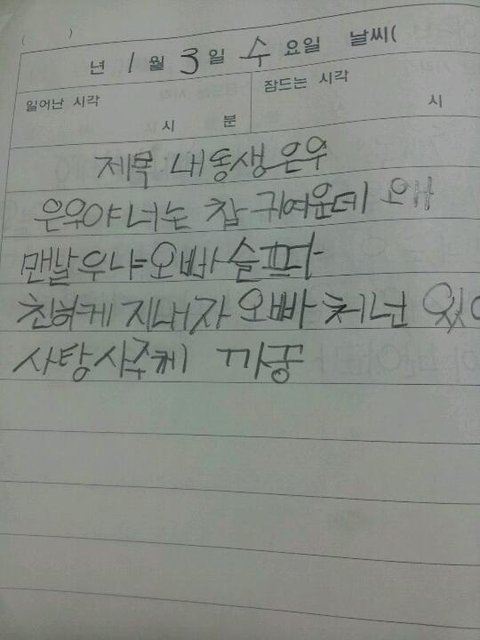 ( )
년 1 월 3 일 수 요일 날씨(
일어난 시각 잠드는 시각
시 분 시
제목 내동생은우
은우야너는 참 귀여운데 왜
맨날우냐오빠슬프다
친하게지내자오빠 처넌 있
사탕사주께 까꿍